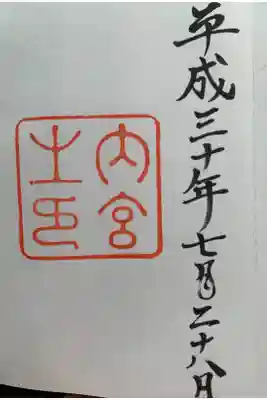 平成三十年七月二十八日
内宮
之印